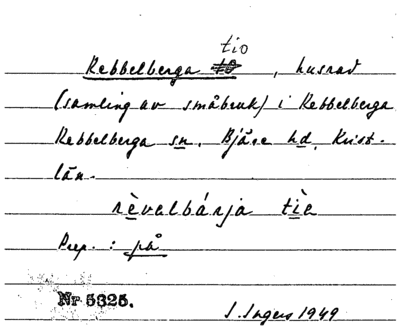 tio
Rebbelberga to, husrad
(samling av småbruk) i Rebbelberga
Rebbelberga sn. Bjäre hd. Krist.
län.
rèvalbárja tìa
Prep.: på
Nr 5325.
I. Ingers 1949